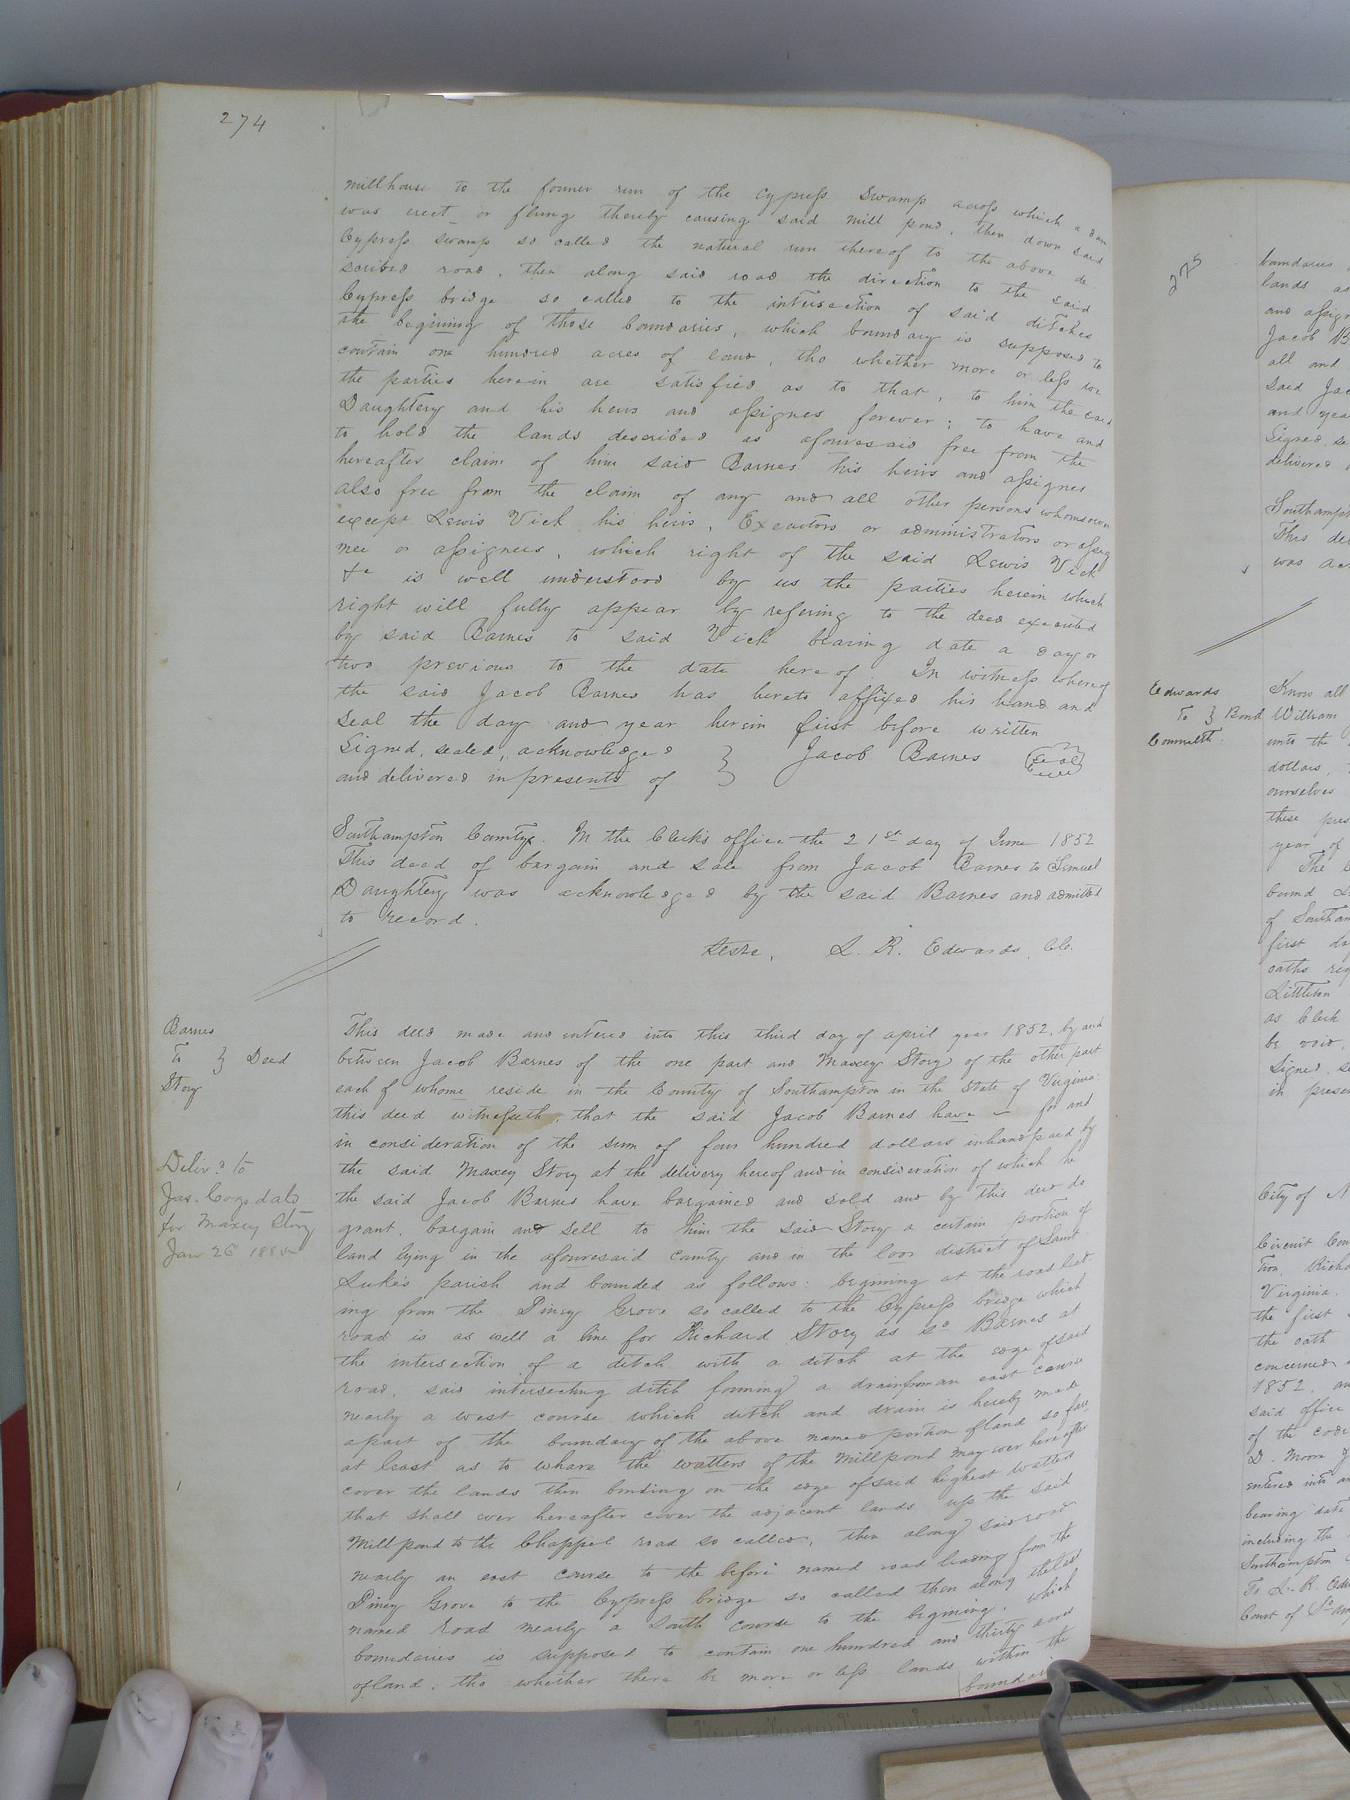 274
millhouse to the former run of the Cypress Swamp across which a dam
was erect or flung thereby causing said mill pond, then down said
Cypress swamp so called the natural run thereof to the above de
scribed road, then along said road the direction to the said
Cypress bridge so called to the intersection of said ditches
the begining of those boundaries, which boundary is supposed to
contain one hundred acres of land, tho whether more or less we
the parties herein are satisfied as to that, to him the said
Daughtery and his heirs and assignes forever; to have and
to hold the lands described as afouresaid free from the
hereafter claim of him said Barnes his heirs and assignes
also free from the claim of any and all other persons whomsoever
except Lewis Vick his heirs, Executors or administrators or assig
nee or assignees, which right of the said Lewis Vick
&c is well understood by us the parties herein which
right will fully appear by refering to the deed executed
by said Barnes to said Vick bearing date a day or
two previous to the date hereof. In witness whereof
the said Jacob Barnes has hereto affixed his hand and
seal the day and year herein first before written
Signed, sealed, acknowledged } Jacob Barnes Seal
and delivered in presents of
Southampton County. In the Clerk's office the 21st day of June 1852
This deed of bargain and sale from Jacob Barnes to Lemuel
Daughtery was acknowledged by the said Barnes and admitted
to record.
Teste, L. R. Edwards, Clk.
Barnes
To } Deed
Story
Deliv.d to
Jas.
for Maxey Story
Jan 26
This deed made and entered into this third day of april year 1852, by and
between Jacob Barnes of the one part and Maxey Story of the other part
each of whome reside in the County of Southampton in the State of Virginia
this deed witnesseth, that the said Jacob Barnes have for and
in consideration of the sum of four hundred dollars in hand paid by
the said Maxey Story at the delivery hereof and in consideration of which he
the said Jacob Barnes have bargained and sold and by this deed do
grant, bargain and sell to him the said Story a certain portion of
land lying in the afouresaid county and in the loos district of Saint
Luke's parish and bounded as follows: begining at the road led
ing from the Piney Grove so called to the Cypress bridge which
road is as well a line for Richard Story as sd Barnes at
the intersection of a ditch with a ditch at the edge of said
road, said intersecting ditch forming a drain from an east course
nearly a west course which ditch and drain is hereby made
apart of the boundary of the above named portion of land so far
at least as to whare the watters of the Millpond may ever hereafter
cover the lands then binding on the edge of said highest watter
that shall ever hereafter cover the adjacent lands up the said
Millpond to the Chappel road so called, then along said road
nearly an east course to the before named road leading from the
Piney Grove to the Cypress bridge so called then along the last
named road nearly a South course to the begining, which
boundaries is supposed to contain one hundred and thirty acres
of land, tho whether there be more or less lands within the
boundari
275
boundaries
lands as
and assign
Jacob B
all and
said Jac
and yea
Signed se
delivered
Southampt
This de
was ac
Edwards
To } Bond
Commwlth.
Know all
William
unto the
dollars,
ourselves
these pres
year of
The
bound
of Southam
first da
oaths req
Littleton
as Clerk
be void,
Signed, se
in presen
City of
Circuit Cou
ton, Richa
Virginia.
the first
the oath
concerned
1852, an
said office
of the code
D. Moore
entered into a
bearing date
including the
Southampton
To L. R. Edw
Court of